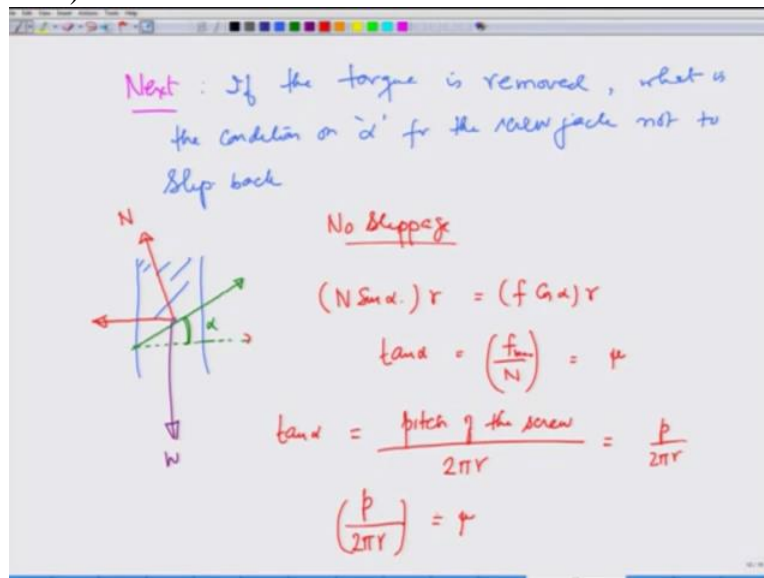 Next : If the torque is removed, what is
the condition on 'α' fr the screw jack not to
slip back
N
No Slippage
(N Sin α.) r = (f Cos α) r
α
tan α = (f max / N) = μ
tan α = pitch of the screw / 2πr = p / 2πr
W
(p / 2πr) = μ